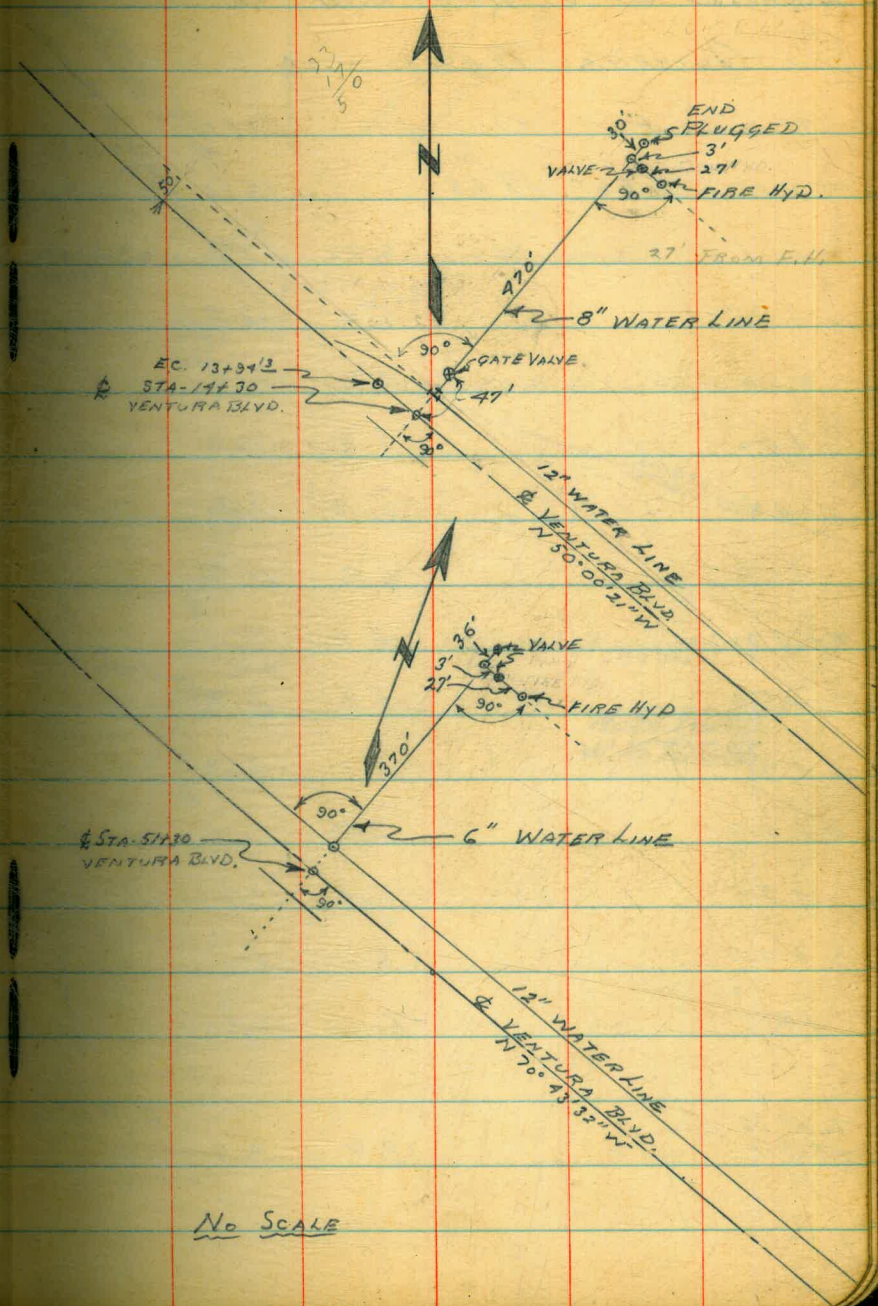 33
17/0
5
N
END
PLUGGED
30'
3'
VALVE
27'
90°
FIRE HYD.
27' FROM F.H.
50'
470'
8" WATER LINE
90°
GATE VALVE.
47'
E.C. 13+94.13
℄ STA-14+30
VENTURA BLVD.
90°
12" WATER LINE
℄ VENTURA BLVD.
N 50° 00' 21" W
N
36'
VALVE
3'
27'
90°
FIRE HYD
370'
90°
6" WATER LINE
℄ STA-51+30
VENTURA BLVD.
90°
12" WATER LINE
℄ VENTURA BLVD.
N 70° 43' 32" W
NO SCALE